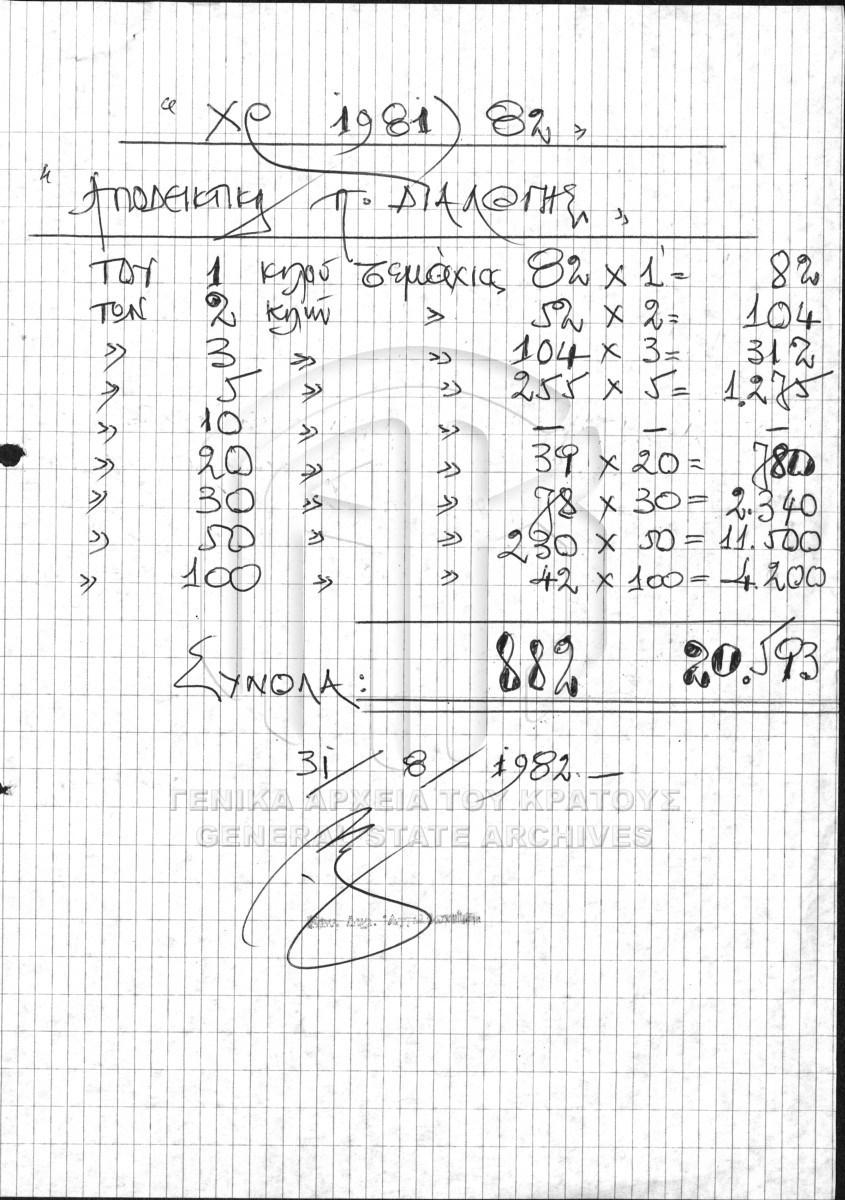 " ΧΡ 1981) 82 »
" ΑΠΟΔΕΙΚΤΙΚΗ Π. ΔΙΑΛΟΓΗΣ »
ΤΟΥ 1 κιλού τεμάχια 82 x 1 = 82
ΤΩΝ 2 κιλών » 52 x 2 = 104
» 3 » » 104 x 3 = 312
» 5 » » 255 x 5 = 1.275
» 10 » » — — —
» 20 » » 39 x 20 = 780
» 30 » » 78 x 30 = 2.340
» 50 » » 230 x 50 = 11.500
» 100 » » 42 x 100 = 4.200
ΣΥΝΟΛΑ: 882 20.593
31 / 8 / 1982.—
ΓΕΝΙΚΑ ΑΡΧΕΙΑ ΤΟΥ ΚΡΑΤΟΥΣ
GENERAL STATE ARCHIVES